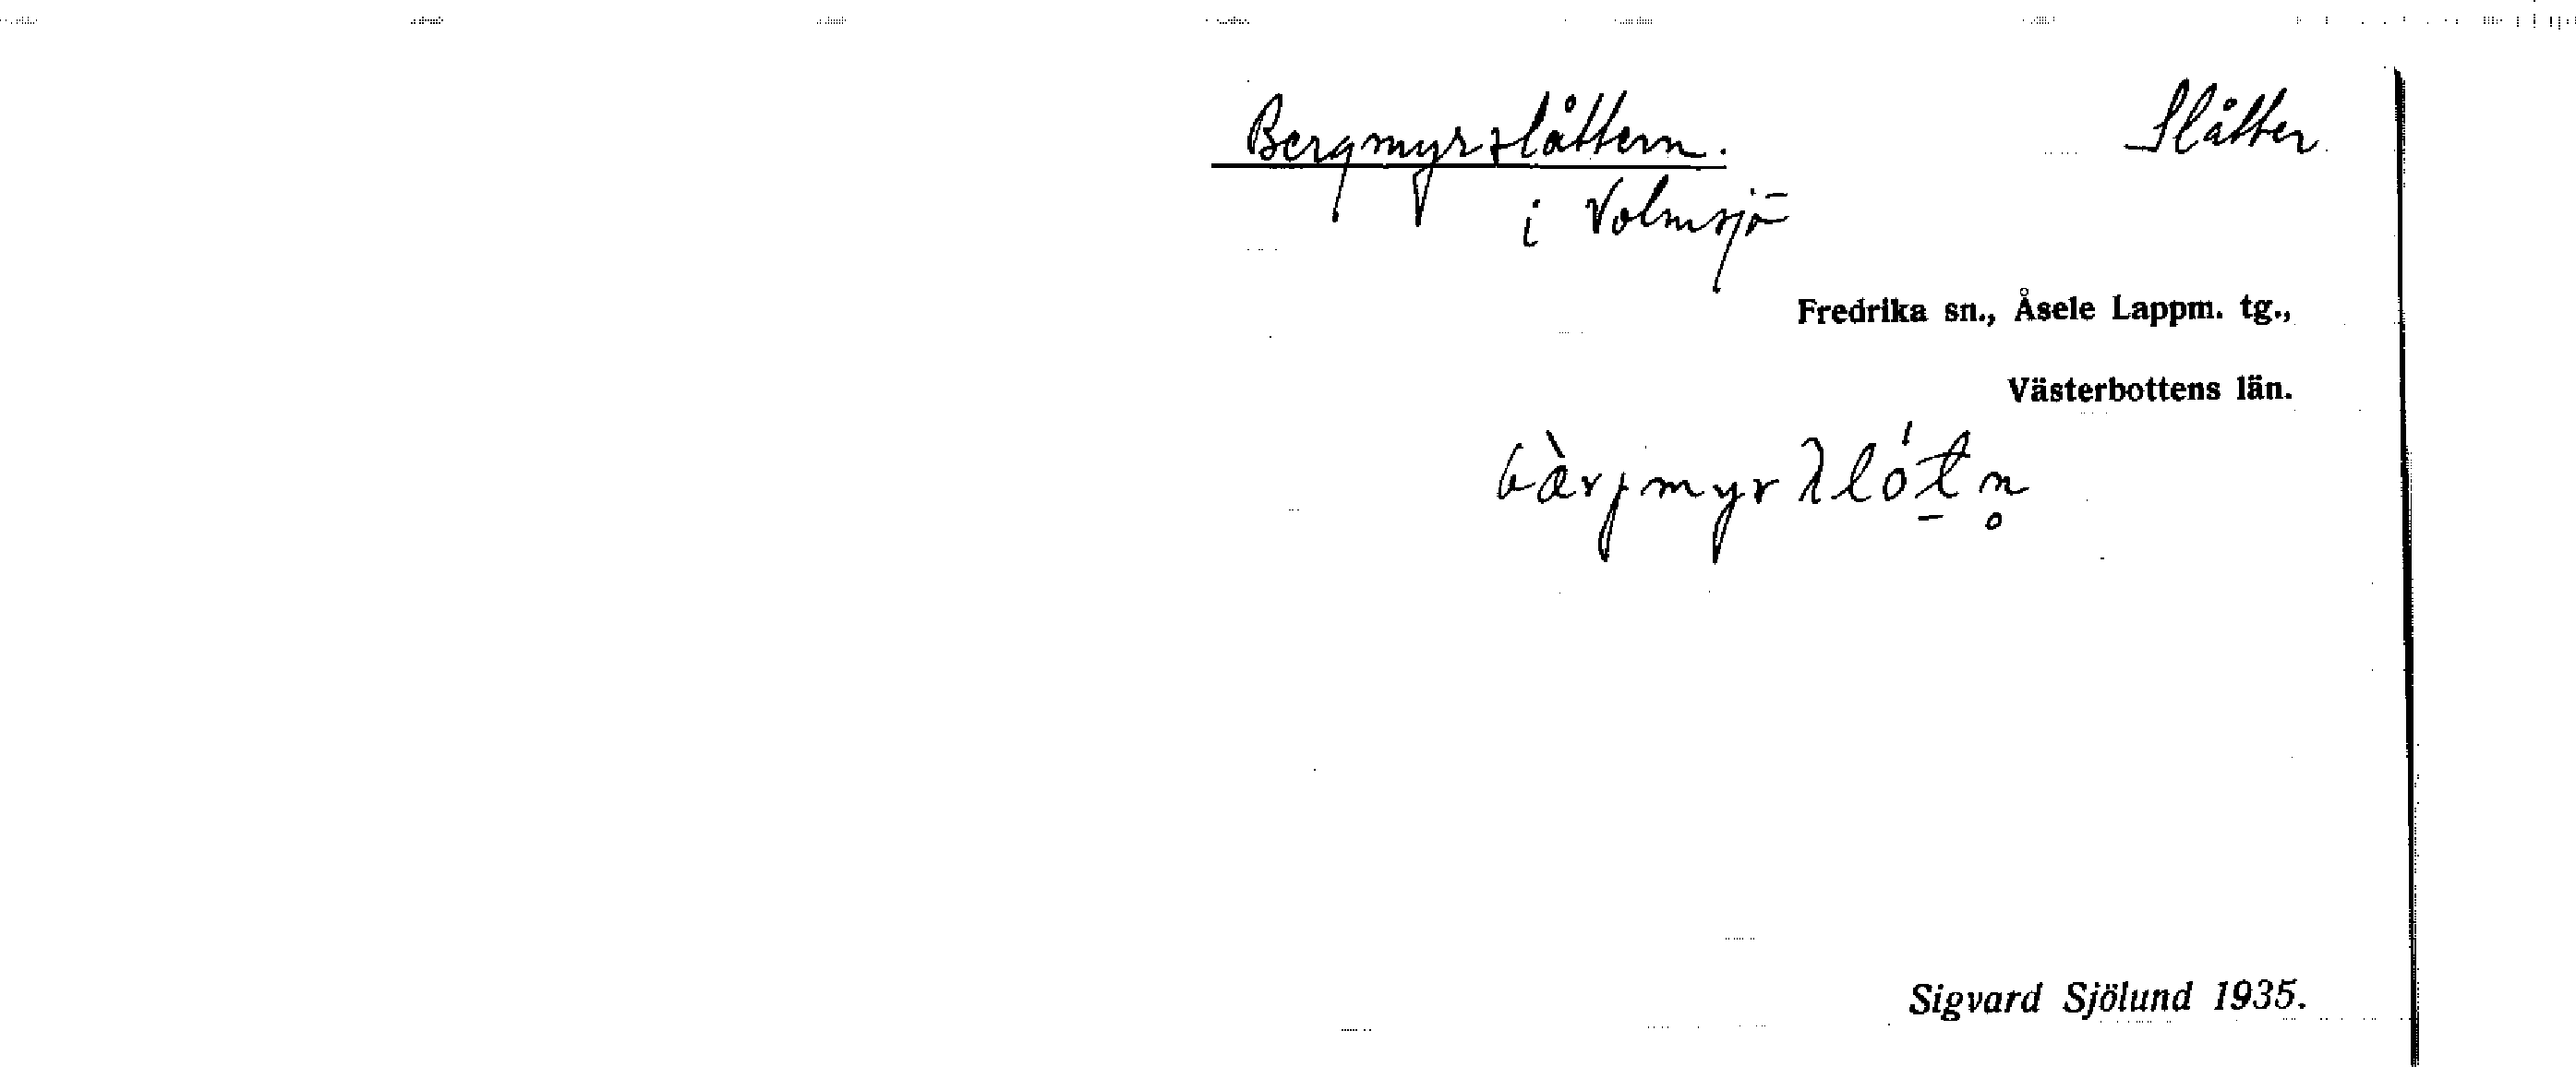 Bergmyrslåttern. Slåtter.
i Volmsjö
Fredrika sn., Åsele Lappm. tg.,
Västerbottens län.
bæ̀rjmyrλlót̠n̥
Sigvard Sjölund 1935.